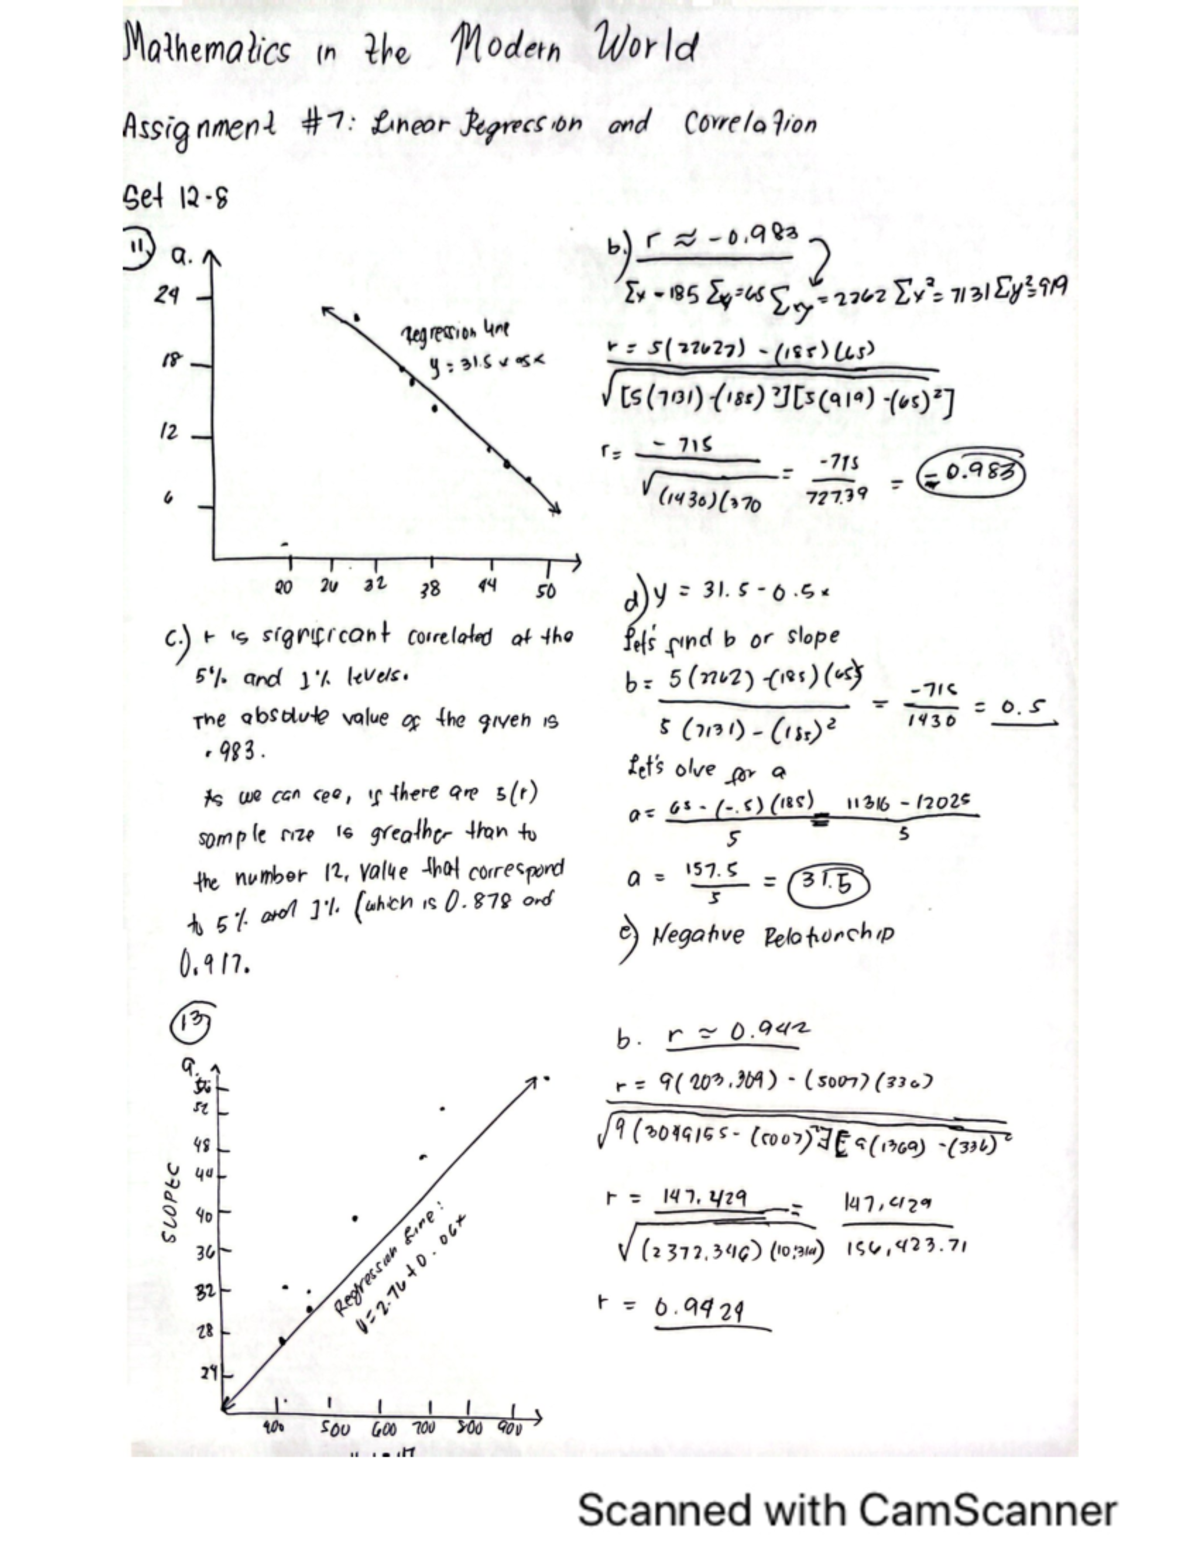 Mathematics in the Modern World
Assignment #7: Linear Regression and Correlation
Set 12-8
11) a.
24
18
12
6
20 26 32 38 44 50
regression line
y = 31.5
b.) r ≈ -0.983
Σx = 185 Σy=65 Σxy = 2262 Σx² = 7131 Σy²=919
r = 5(22627) - (185)(65)
√[5(7131)-(185)²][5(919)-(65)²]
r = -715 / √(1430)(370 = -715 / 727.39 = -0.983
c.) r is significant correlated at the
5% and 1% levels.
The absolute value of the given is
.983.
As we can see, if there are 5(r)
sample size is greather than to
the number 12, value that correspond
to 5% and 1% (which is 0.878 and
0.917.
d) y = 31.5 - 0.5x
Let's find b or slope
b = 5(2262)-(185)(65) / 5(7131) - (185)² = -715 / 1430 = 0.5
Let's olve for a
a = 65 - (-.5)(185) / 5 = 11316 - 12025 / 5
a = 157.5 / 5 = 31.5
e) Negative Relationship
13)
a.
56
52
48
44
40
36
32
28
24
SLOPEC
400 500 600 700 800 900
Regression Line:
y = 2.76+0.06x
b. r ≈ 0.942
r = 9(203,309) - (5007)(336)
√9(3049155 - (5007)²][9(1369) - (336)²
r = 147,429 / √(2372,346)(10,314) = 147,429 / 156,423.71
r = 0.9424
Scanned with CamScanner